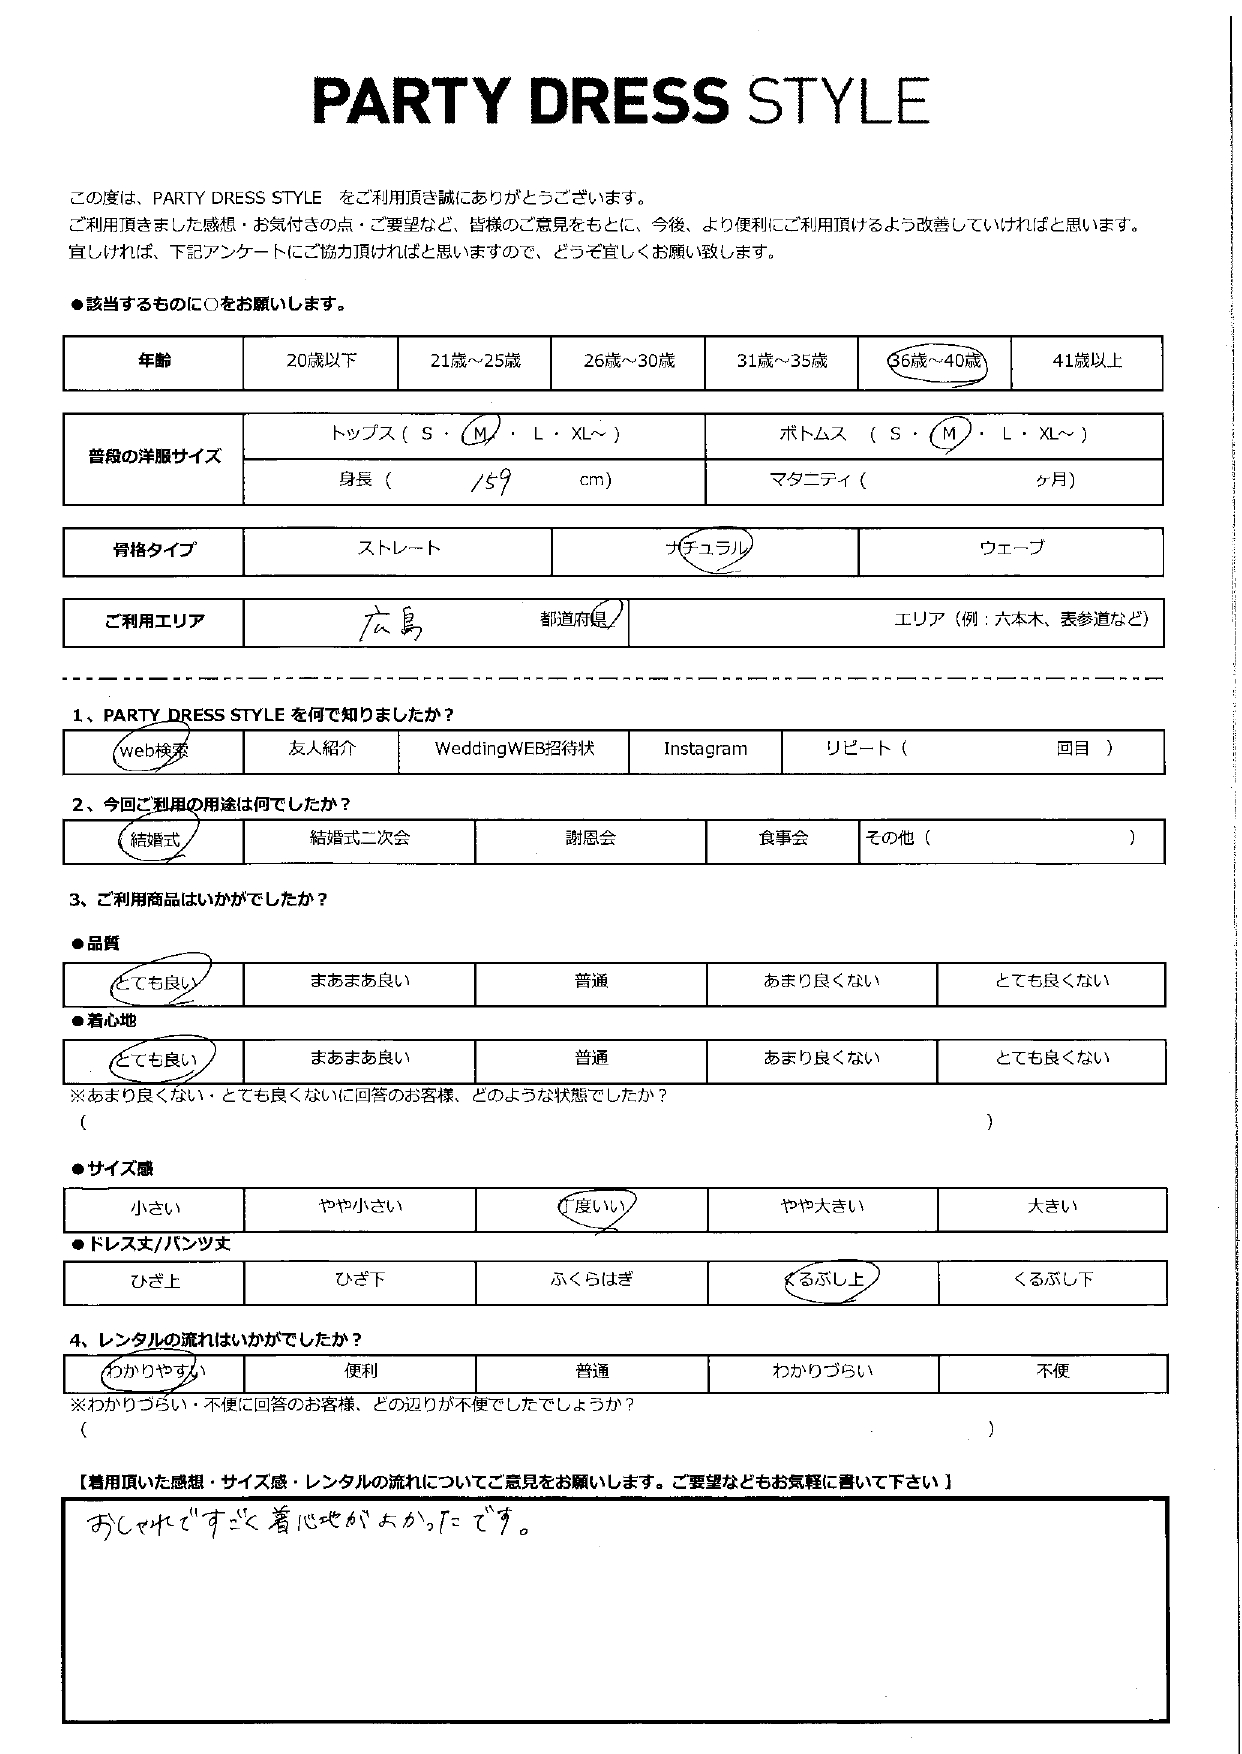 PARTY DRESS STYLE
この度は、PARTY DRESS STYLE をご利用頂き誠にありがとうございます。
ご利用頂きました感想・お気付きの点・ご要望など、皆様のご意見をもとに、今後、より便利にご利用頂けるよう改善していければと思います。
宜しければ、下記アンケートにご協力頂ければと思いますので、どうぞ宜しくお願い致します。
●該当するものに○をお願いします。
年齢 20歳以下 21歳～25歳 26歳～30歳 31歳～35歳 36歳～40歳 41歳以上
普段の洋服サイズ トップス ( S ・ M ・ L ・ XL～ ) ボトムス ( S ・ M ・ L ・ XL～ )
身長 ( 159 cm) マタニティ ( ヶ月)
骨格タイプ ストレート ナチュラル ウェーブ
ご利用エリア 広島 都道府県 エリア（例：六本木、表参道など）
1、PARTY DRESS STYLE を何で知りましたか？
web検索 友人紹介 WeddingWEB招待状 Instagram リピート（ 回目 ）
2、今回ご利用の用途は何でしたか？
結婚式 結婚式二次会 謝恩会 食事会 その他（ ）
3、ご利用商品はいかがでしたか？
●品質
とても良い まあまあ良い 普通 あまり良くない とても良くない
●着心地
とても良い まあまあ良い 普通 あまり良くない とても良くない
※あまり良くない・とても良くないに回答のお客様、どのような状態でしたか？
( )
●サイズ感
小さい やや小さい 丁度いい やや大きい 大きい
●ドレス丈/パンツ丈
ひざ上 ひざ下 ふくらはぎ くるぶし上 くるぶし下
4、レンタルの流れはいかがでしたか？
わかりやすい 便利 普通 わかりづらい 不便
※わかりづらい・不便に回答のお客様、どの辺りが不便でしたでしょうか？
( )
【着用頂いた感想・サイズ感・レンタルの流れについてご意見をお願いします。ご要望などもお気軽に書いて下さい 】
おしゃれですごく着心地がよかったです。